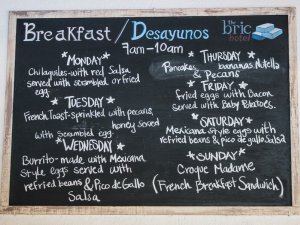 Breakfast / Desayunos
7am-10am
the bric hotel
*MONDAY*
Chilaquiles-with red Salsa
served with scrambled or fried
egg
*TUESDAY*
French Toast-sprinkled with pecans,
honey served
with scrambled egg
*WEDNESDAY*
Burrito-made with Mexicana
Style eggs served with
refried beans & Pico de Gallo
Salsa
*THURSDAY*
Pancakes, bananas Nutella
& Pecans
*FRIDAY*
fried eggs with Bacon
Served with Baby Potatoes.
*SATURDAY*
Mexicana Style eggs with
refried beans & pico de gallo Salsa
*SUNDAY*
Croque Madame
(French Breakfast Sandwich)